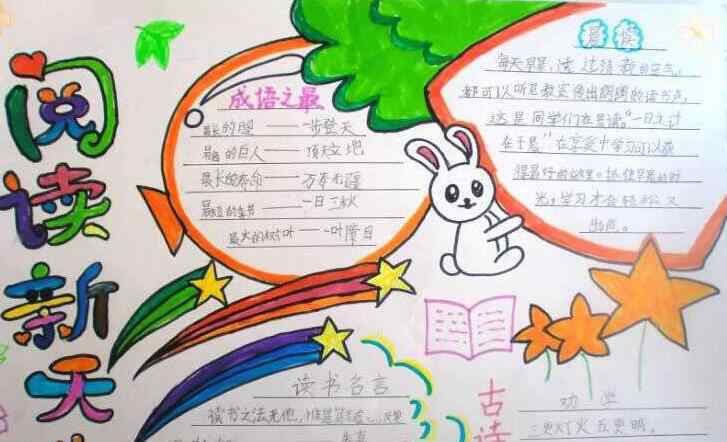 阅读新天
成语之最
最长的腿——一步登天
最高的巨人——顶天立地
最长的寿命——万寿无疆
最短的季节——一日三秋
最大的树叶——一叶障目
晨读
每天早晨，
都可以听见教室传出朗朗的读书声，
这是同学们在晨读。"一日之计
在于晨"在
学习可以获
得最好的效果。抓住早晨的时
光，学习才会轻松又
读书名言
读书之法无他，
朱熹
古诗
劝学
三更灯火五更鸡，